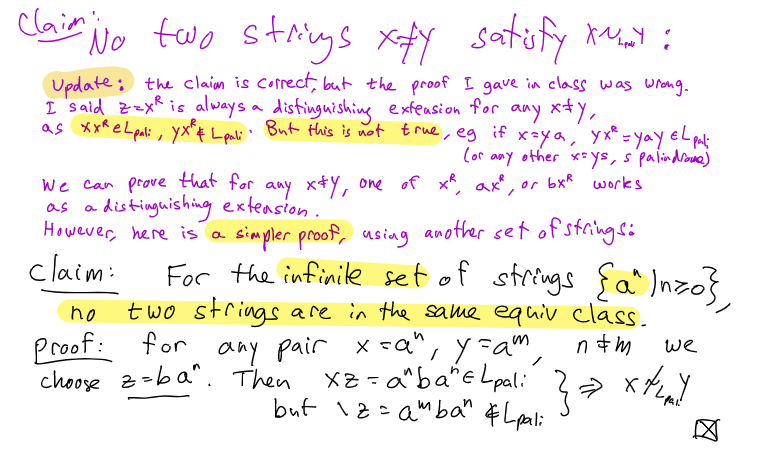 Claim: No two strings x≠y satisfy x~_{L_{pali}} y :
Update: the claim is correct, but the proof I gave in class was wrong.
I said z=x^R is always a distinguishing extension for any x≠y,
as xx^R ∈ L_{pali}, yx^R ∉ L_{pali}. But this is not true, eg if x=ya, yx^R = yay ∈ L_{pali}
(or any other x=ys, s palindrome)
We can prove that for any x≠y, one of x^R, ax^R, or bx^R works
as a distinguishing extension.
However, here is a simpler proof, using another set of strings:
Claim: For the infinite set of strings {a^n | n≥0},
no two strings are in the same equiv class.
Proof: for any pair x=a^n, y=a^m, n≠m we
choose z=ba^n. Then xz = a^n ba^n ∈ L_{pali} } ⇒ x ≁_{L_{pali}} y
but \z = a^m ba^n ∉ L_{pali}